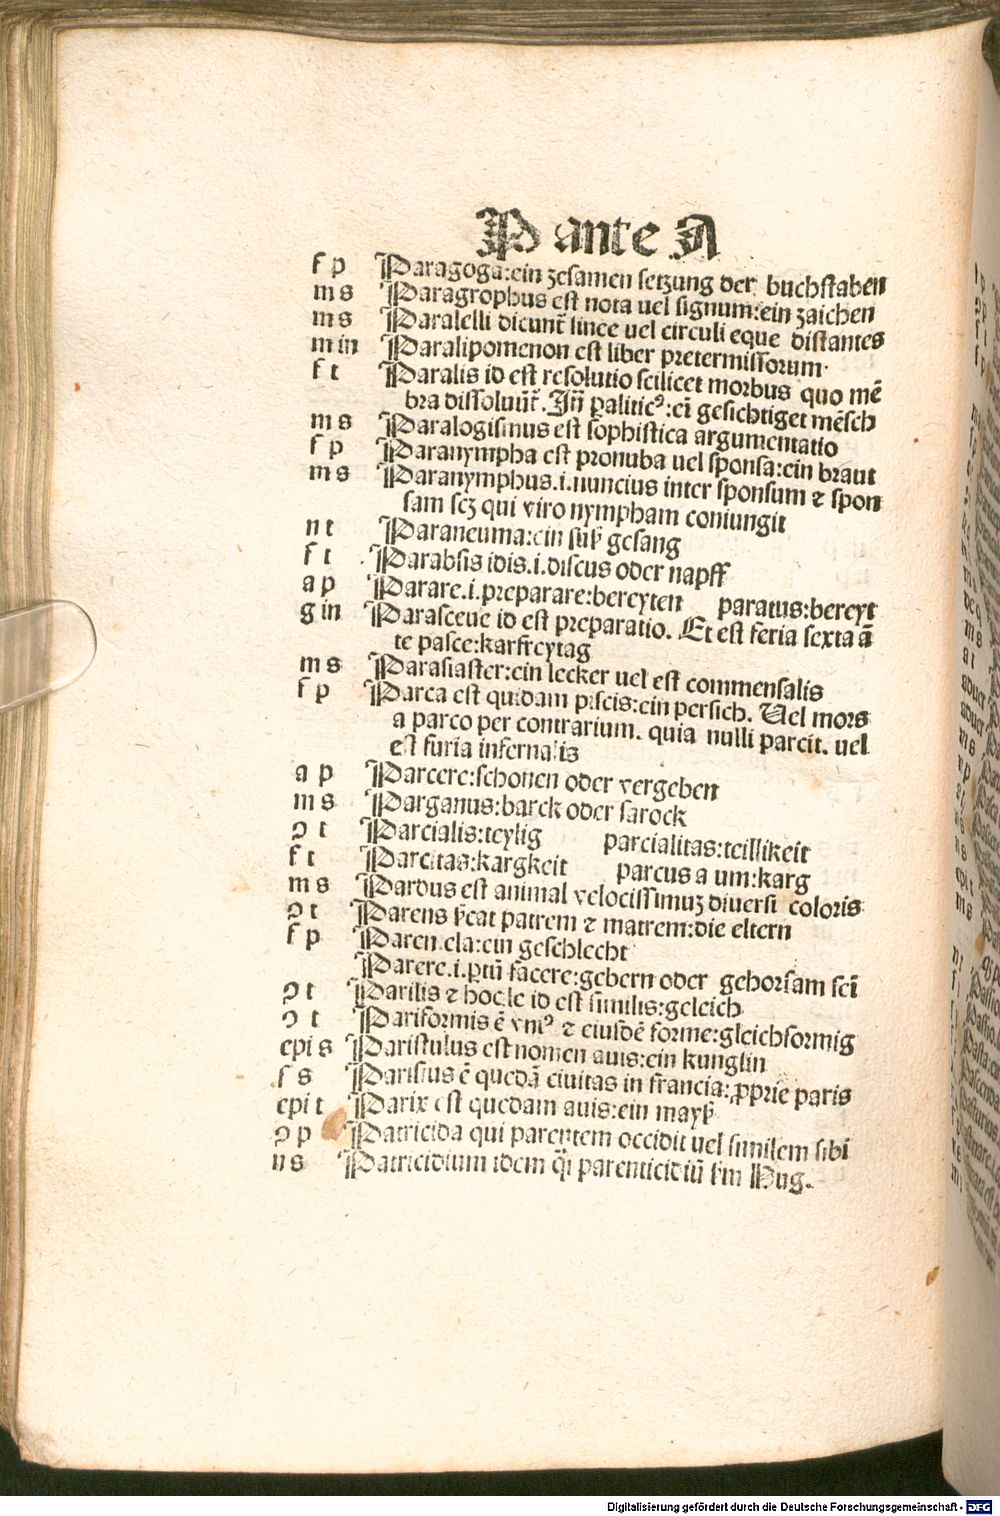 P ante A
f p Paragoga:ein zesamen setzung der buchstaben
m s Paragrophus est nota uel signum:ein zaichen
m s Paralelli dicunt̃ linee uel circuli eque distantes
m in Paralipomenon est liber pretermissorum·
f t Paralis id est resolutio scilicet morbus quo mẽ
bra dissoluũt̃. Iñ paliticꝰ:eĩ gesichtiget mẽsch
m s Paralogismus est sophistica argumentatio
f p Paranympha est pronuba uel sponsa:ein braut
m s Paranymphus.i.nuncius inter sponsum ⁊ spon
sam scꝫ qui viro nympham coniungit
n t Paraneuma:ein gesang
f t Parabsis idis.i.discus oder napff
a p Parare.i.preparare:bereyten paratus:bereyt
g in Parasceue id est preparatio. Et est feria sexta ã
te pasce:karfreytag
m s Parasiaster:ein lecker uel est commensalis
f p Parca est quedam piscis:ein persich. Uel mors
a parco per contrarium. quia nulli parcit. uel
est furia infernalis
a p Parcere:schonen oder vergeben
m s Parganus:barck oder sarock
ꝯ t Parcialis:teylig parcialitas:teillikeit
f t Parcitas:kargkeit parcus a um:karg
m s Pardus est animal velocissimuꝫ diuersi coloris
ꝯ t Parens patrem ⁊ matrem:die eltern
f p Parentela:ein geschlecht
Parere.i.ꝑtũ facere:gebern oder gehorsam seĩ
ꝯ t Parilis ⁊ hoc le id est similis:geleich
ꝯ t Pariformis ẽ vniꝰ ⁊ eiusdẽ forme:gleichformig
epi s Paristulus est nomen auis:ein kunglin
f s Parisius ẽ quedã ciuitas in francia:ꝓprie paris
epi t Parix est quedam auis:ein
ꝯ p Patricida qui parentem occidit uel similem sibi
n s Patricidium idem parenticidiũ Hug.
Digitalisierung gefördert durch die Deutsche Forschungsgemeinschaft - DFG